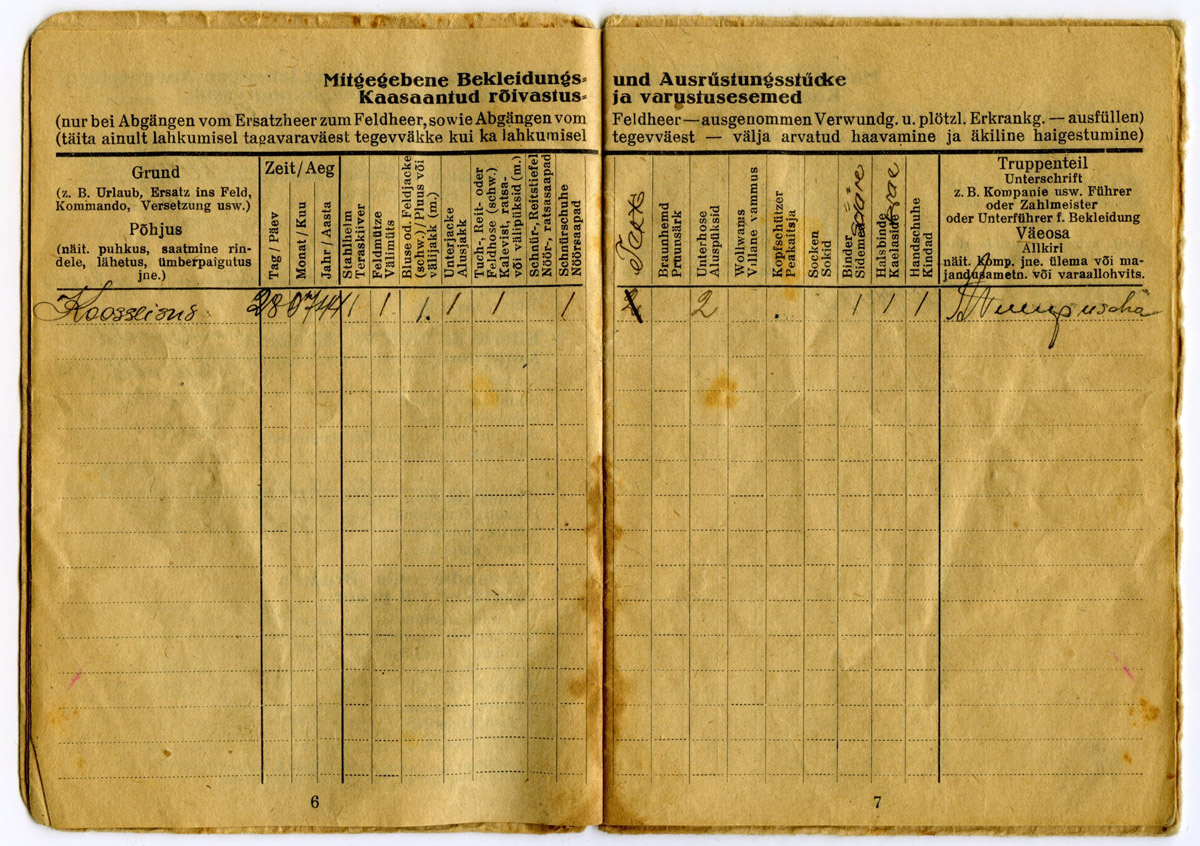 Mitgegebene Bekleidungs-
Kaasaantud rõivastus-
(nur bei Abgängen vom Ersatzheer zum Feldheer, sowie Abgängen vom
(täita ainult lahkumisel tagavaraväest tegevväkke kui ka lahkumisel
Grund
(z. B. Urlaub, Ersatz ins Feld,
Kommando, Versetzung usw.)
Põhjus
(näit. puhkus, saatmine rin-
dele, lähetus, ümberpaigutus
jne.)
Zeit / Aeg
Tag / Päev
Monat / Kuu
Jahr / Aasta
Stahlhelm
Teraskiiver
Feldmütze
Välimüts
Bluse od. Feldjacke
(schw.) Pluus või
välijakk (m.)
Unterjacke
Alusjakk
Tuch-, Reit- oder
Feldhose (schw.)
Kalevist, ratsa-
või välipüksid (m.)
Schnür-, Reitstiefel
Nöör-, ratsasaapad
Schnürschuhe
Nöörsaapad
28 07 44 1 1 1. 1 1 1
6
und Ausrüstungsstücke
ja varustusesemed
Feldheer—ausgenommen Verwundg. u. plötzl. Erkrankg. — ausfüllen)
tegevväest — välja arvatud haavamine ja äkiline haigestumine)
Braunhemd
Pruunsärk
Unterhose
Aluspüksid
Wollwams
Villane vammus
Kopfschützer
Peakaitsja
Socken
Sokid
Binder
Sidemed
Halsbinde
Kaelaside
Handschuhe
Kindad
Truppenteil
Unterschrift
z. B. Kompanie usw. Führer
oder Zahlmeister
oder Unterführer f. Bekleidung
Väeosa
Allkiri
näit. Komp. jne. ülema või ma-
jandusametn. või varaallohvits.
2 . 1 1 1
7